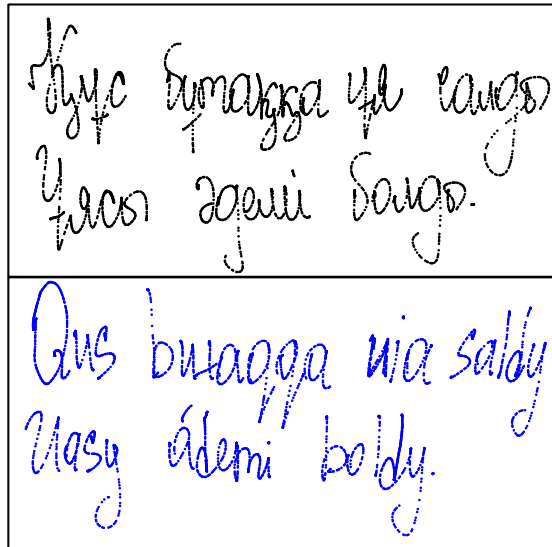 Құс бұтаққа ұя салды
Ұясы әдемі болды.
Qus butaqqa uia saldy
Uasy ádemi boldy.